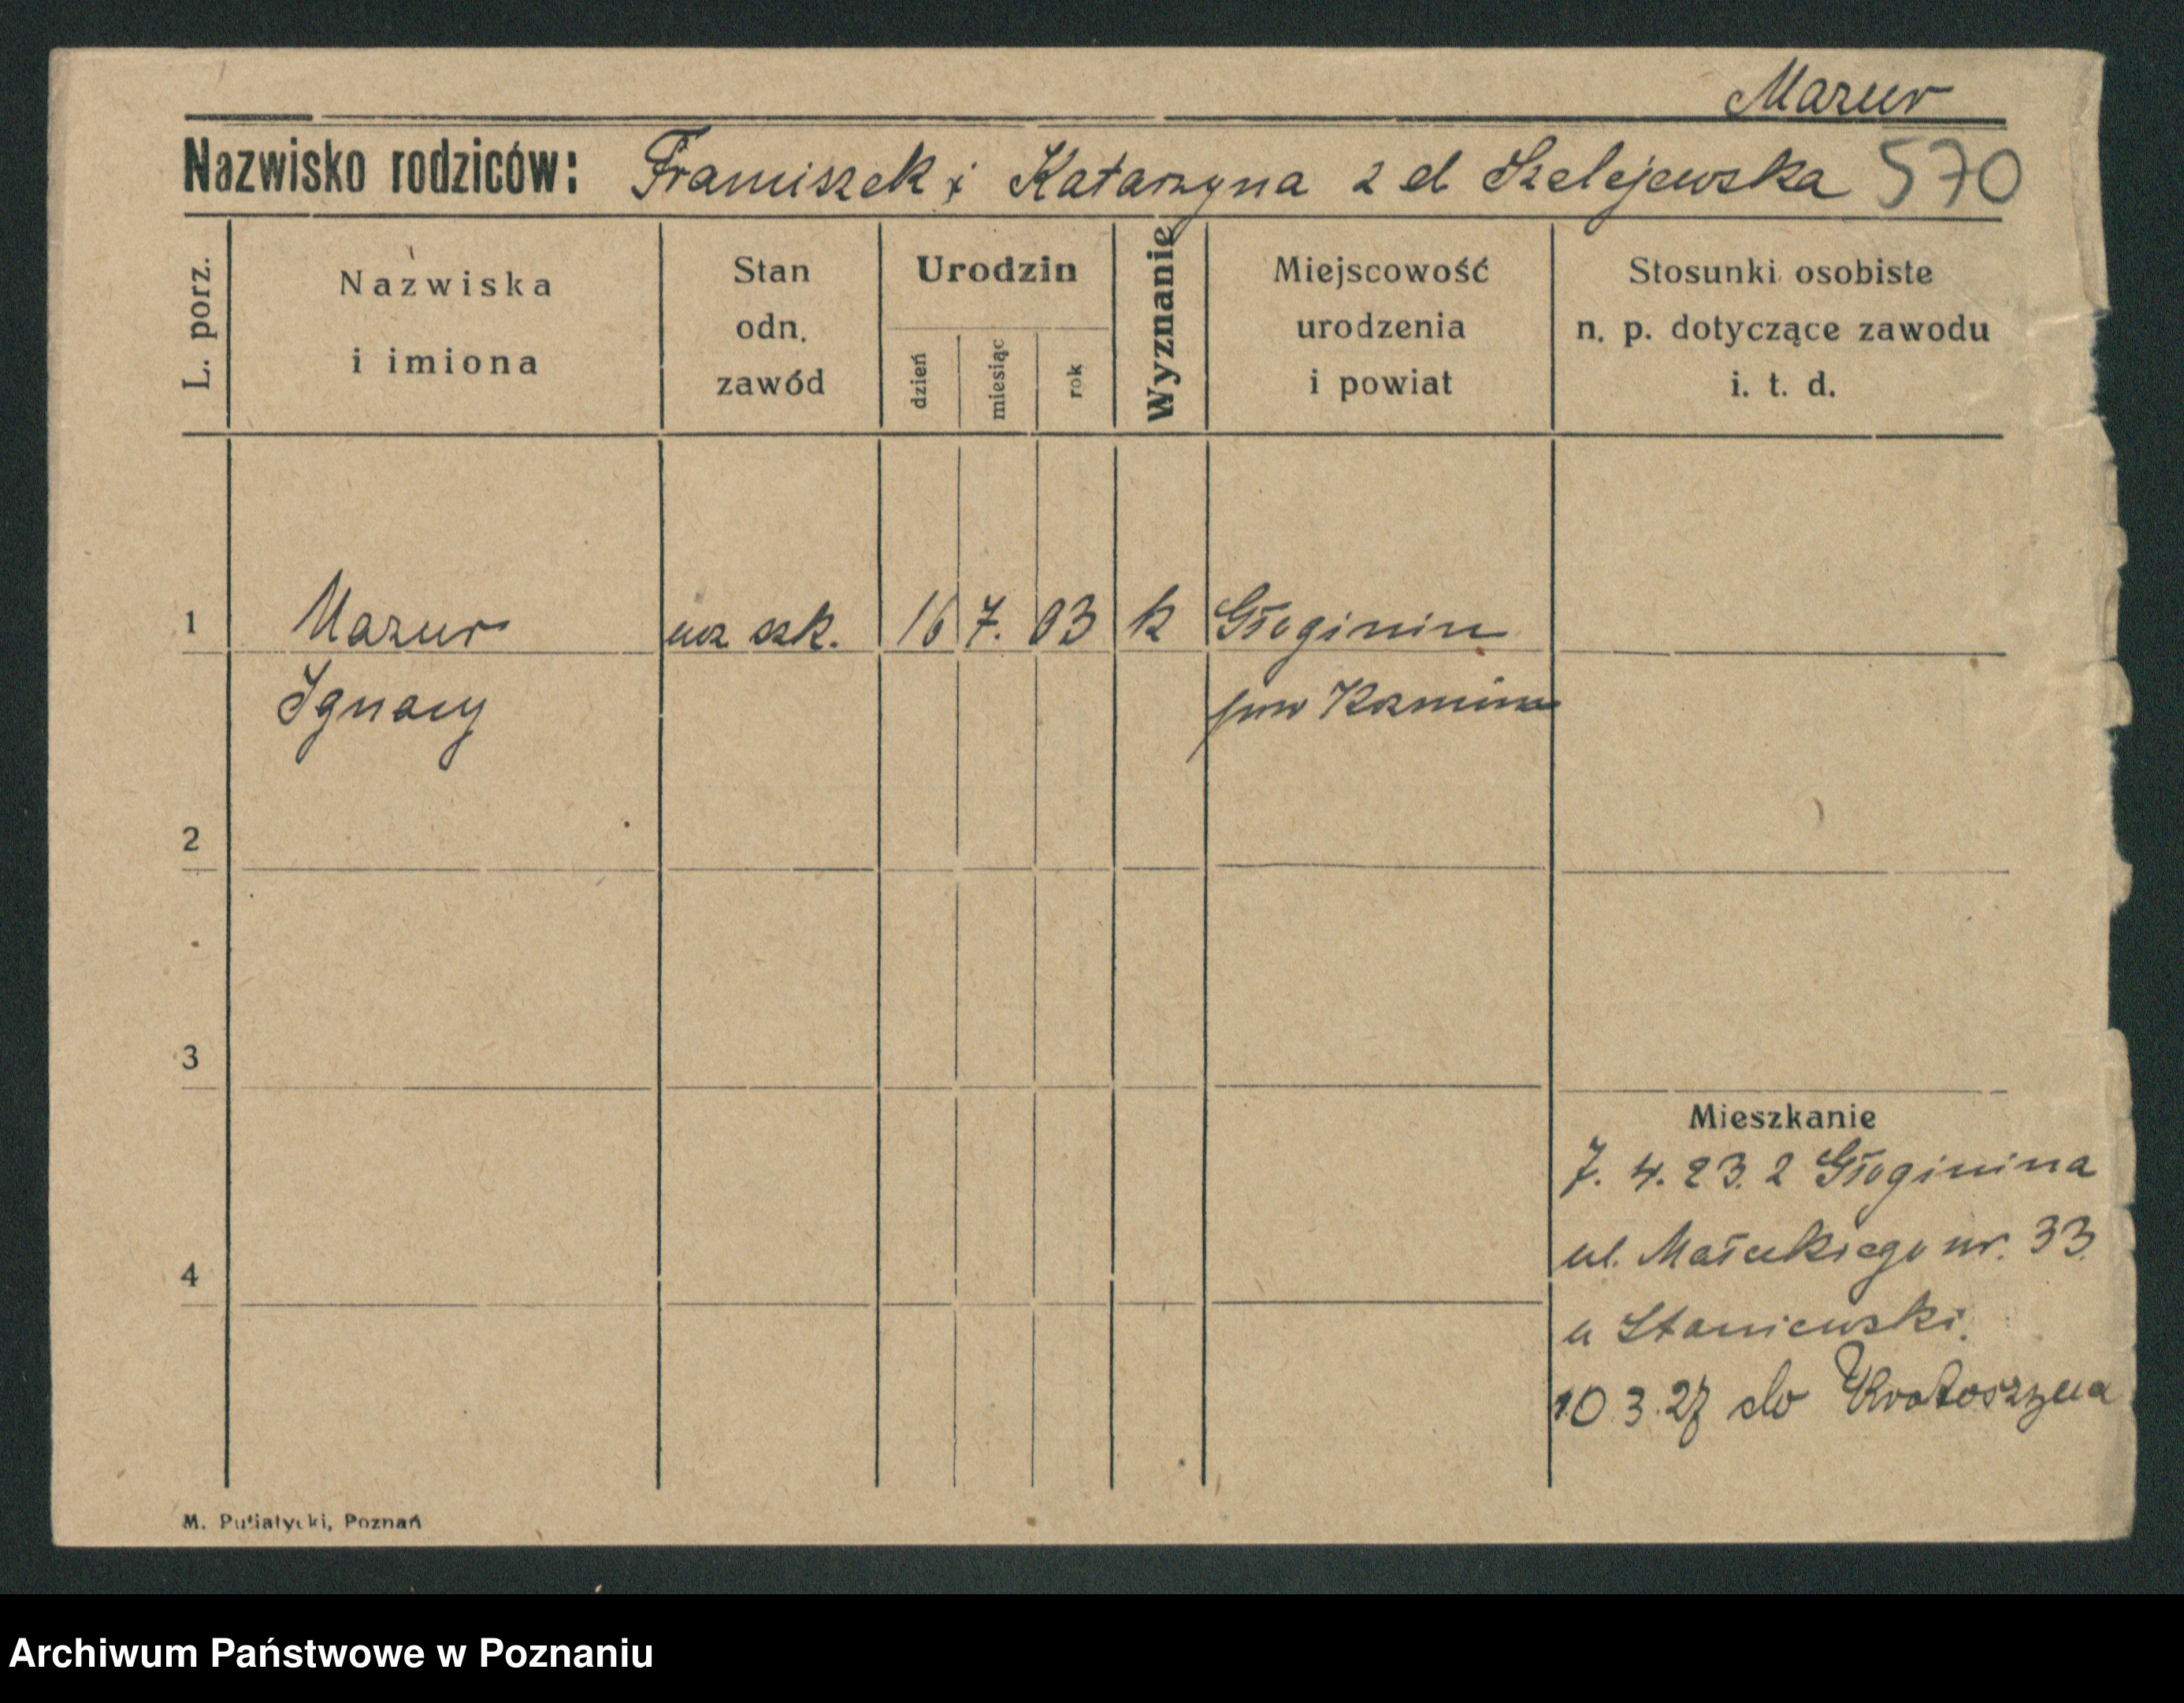 Mazur
Nazwisko rodziców: Franciszek i Katarzyna z d Szelejewska 570
L. porz.
Nazwiska
i imiona
Stan
odn.
zawód
Urodzin
dzień
miesiąc
rok
Wyznanie
Miejscowość
urodzenia
i powiat
Stosunki osobiste
n. p. dotyczące zawodu
i. t. d.
1 Mazur ucz szk. 16 7. 03 k Głoginin
Ignacy pow Kozmin
2
3
Mieszkanie
7. 4. 23. z Głoginina
ul. Małeckiego nr. 33.
4
u Staniewski.
10 3. 27 do Krotoszyna
M. Putiatycki, Poznań
Archiwum Państwowe w Poznaniu